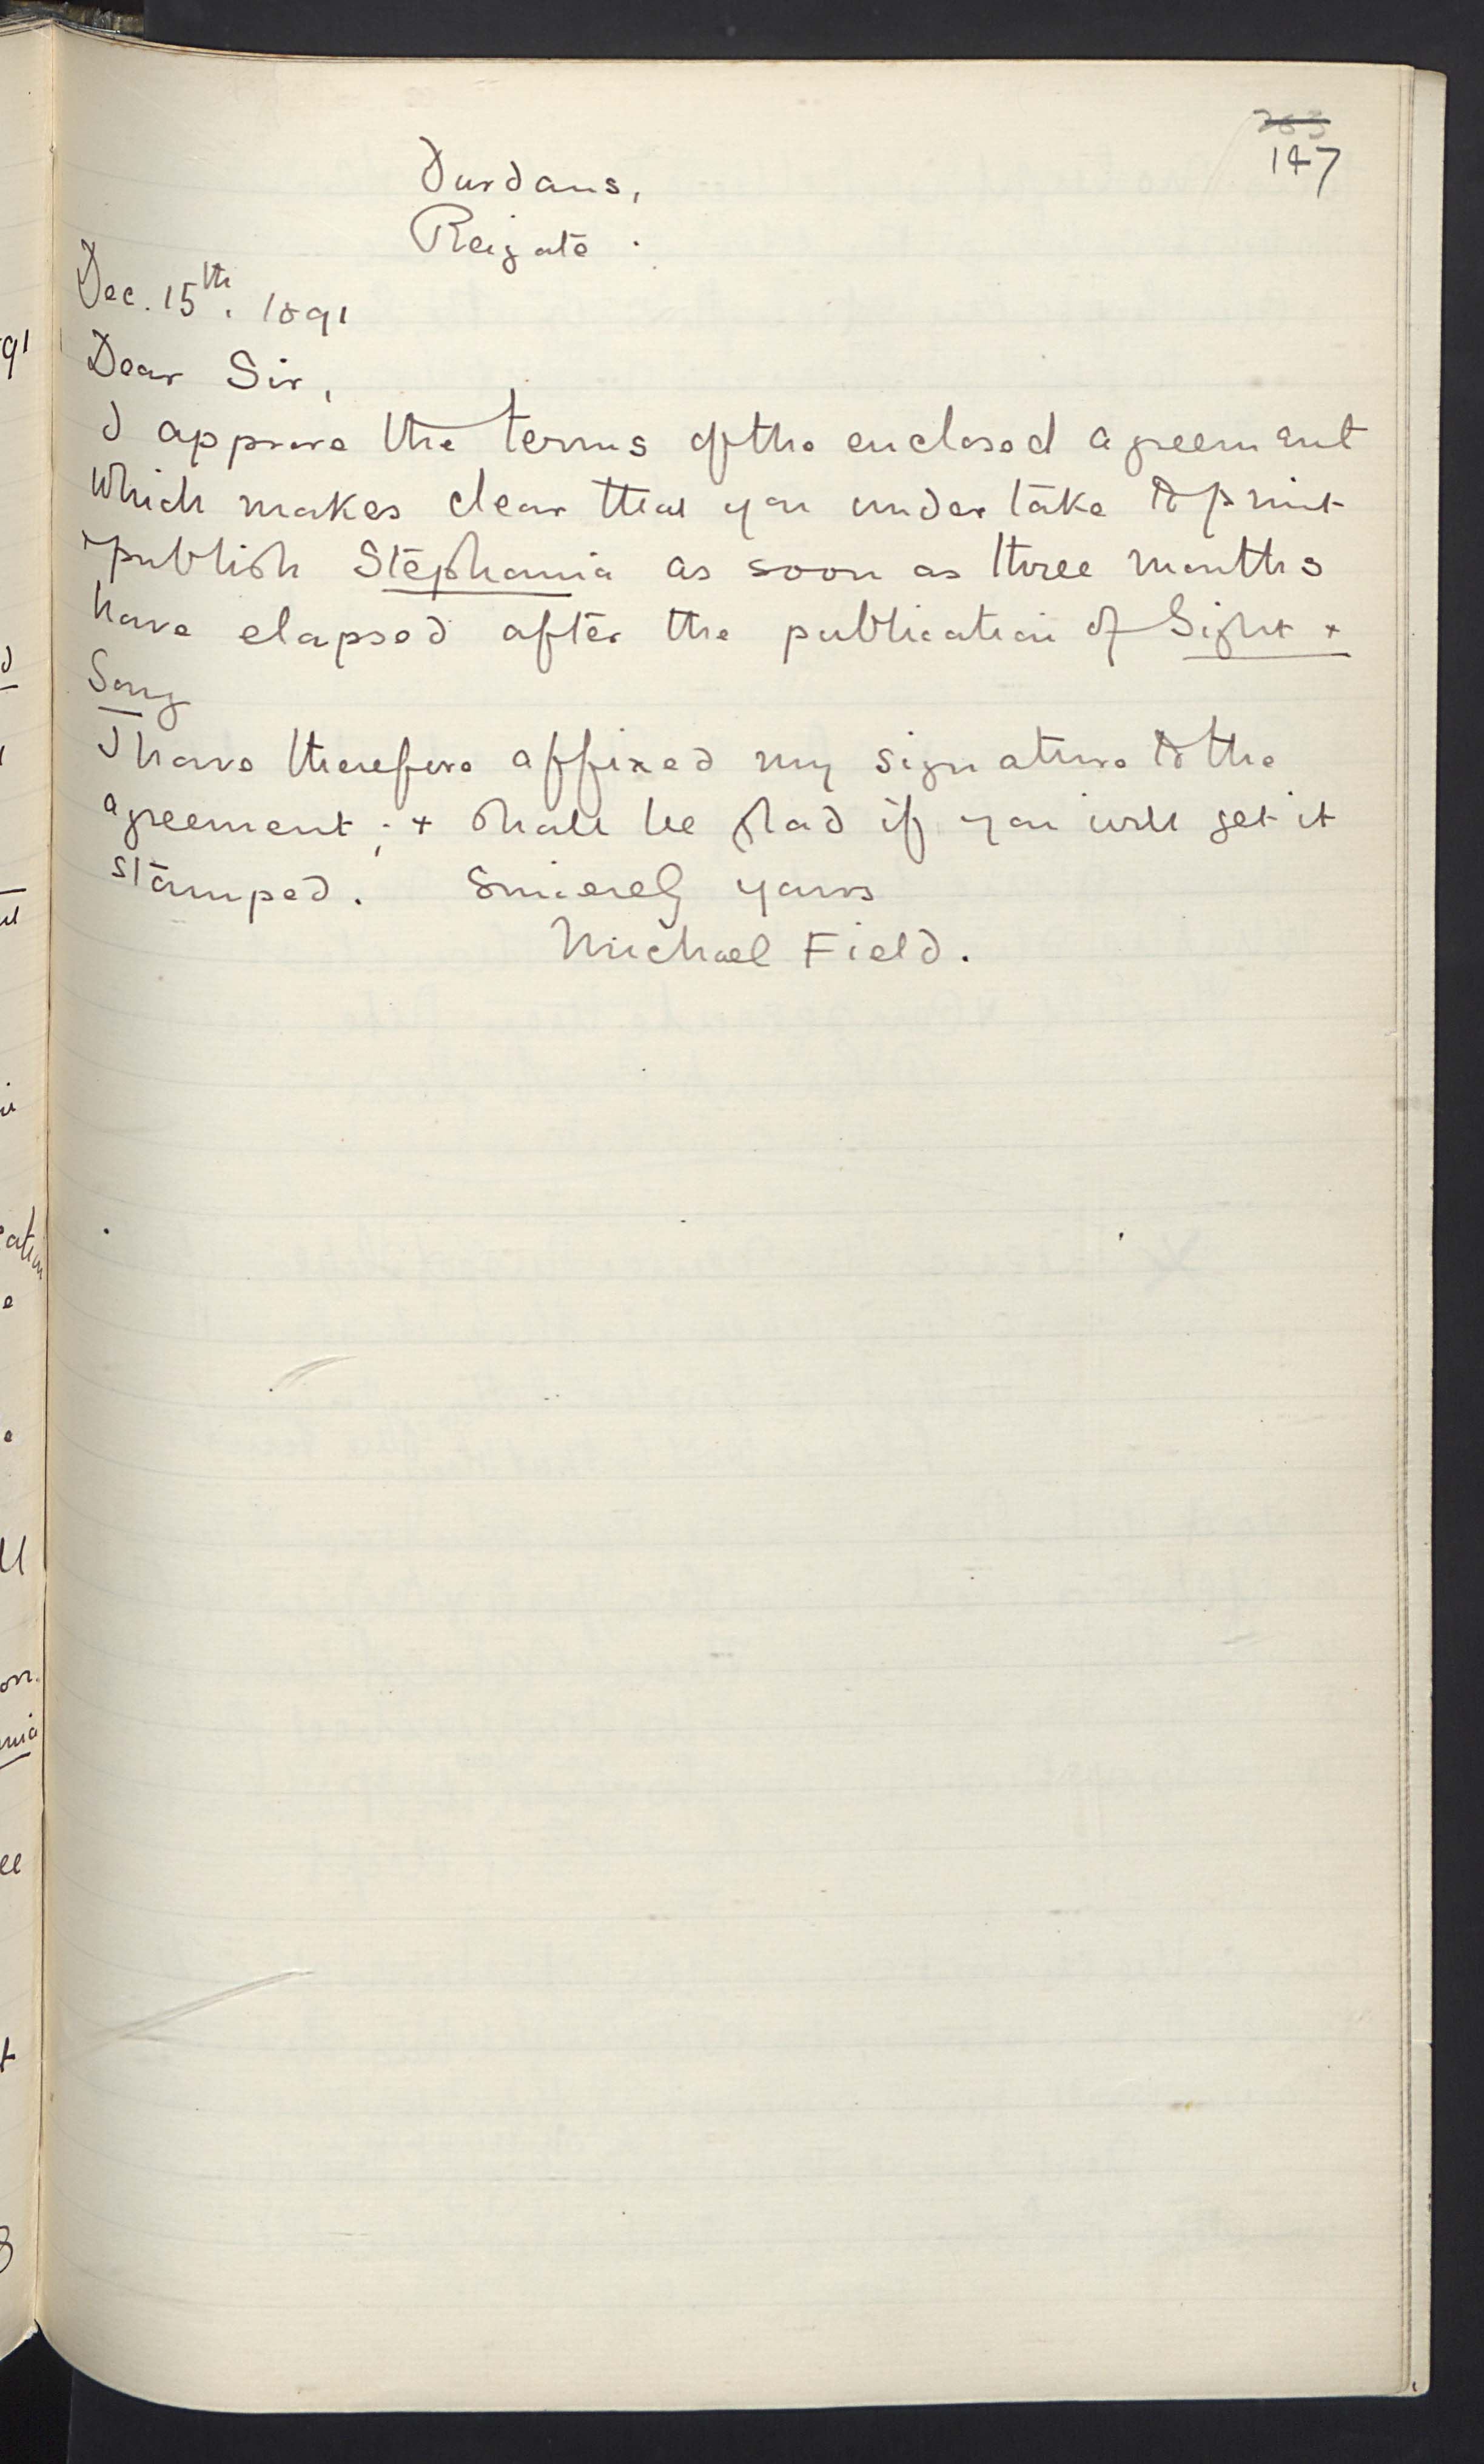 263
147
Durdans,
Reigate.
Dec. 15th. 1891
Dear Sir,
I approve the terms of the enclosed agreement
which makes clear that you undertake to print
+ publish Stephania as soon as three months
have elapsed after the publication of Sight +
Song
I have therefore affixed my signature to the
agreement; + shall be glad if you will get it
stamped. Sincerely yours
Michael Field.